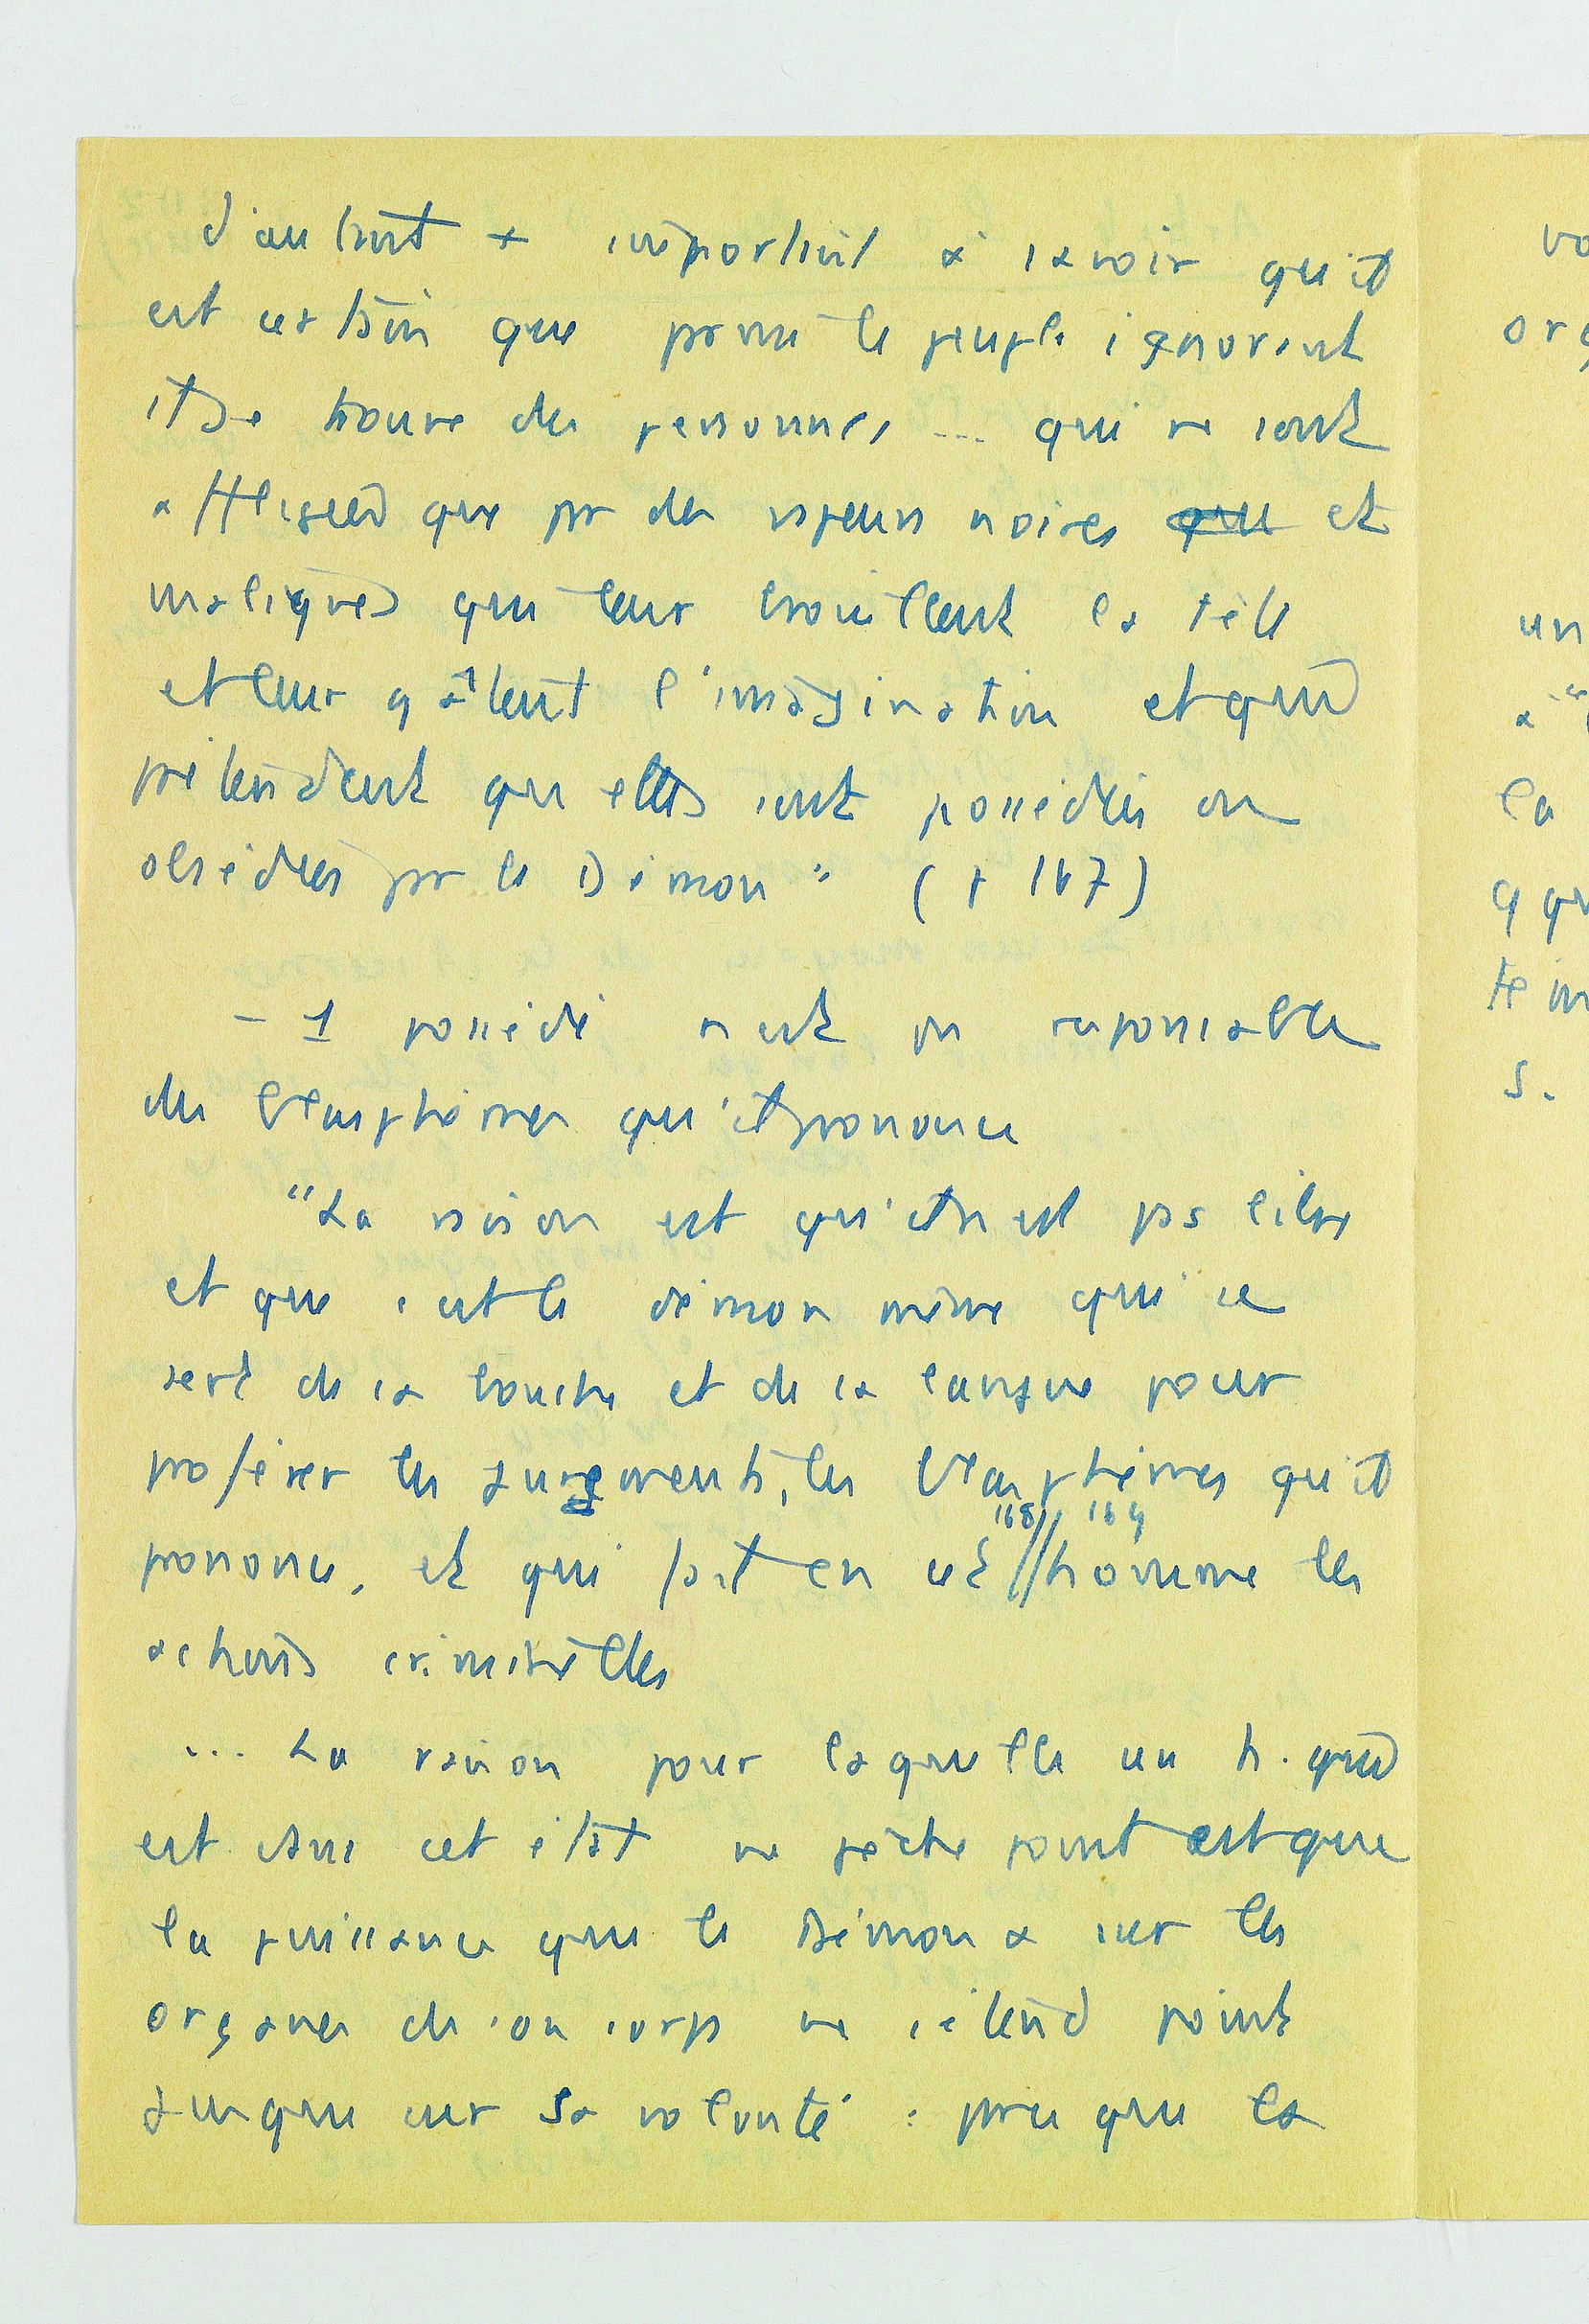 d'autant + important à savoir qu'il
est certain que parmi le peuple ignorant
il se trouve des personnes ... qui ne sont
affligées que par des vapeurs noires et
malignes qui leur brouillent la tête
et leur gâtent l'imagination et qui
prétendent qu'elles sont possédées ou
obsédées par le Démon" (p 167)
- 1 possédé n'est pas responsable
des blasphèmes qu'il prononce
"La raison est qu'il n'est pas libre
et que c'est le démon même qui se
sert de sa bouche et de sa langue pour
proférer les jurements, les blasphèmes qu'il
168 // 169
prononce, et qui fait en cet // homme les
actions criminelles
... La raison pour laquelle un h. qui
est dans cet état ne pèche point est que
la puissance que le Démon a sur les
organes de son corps ne s'étend point
jusque sur sa volonté : parce que la
vo
org
un
à "
la
q qu
te m
s.